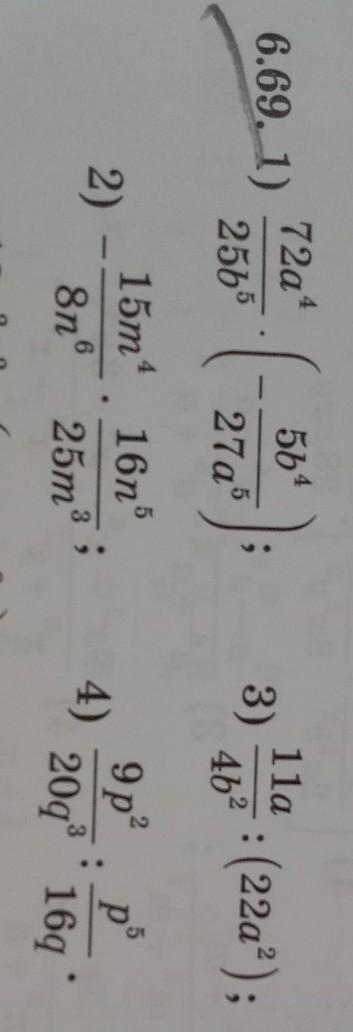 6.69. 1) \frac{72a^4}{25b^5} · \left(-\frac{5b^4}{27a^5}\right); 3) \frac{11a}{4b^2} : (22a^2);
2) -\frac{15m^4}{8n^6} · \frac{16n^5}{25m^3}; 4) \frac{9p^2}{20q^3} : \frac{p^5}{16q}.